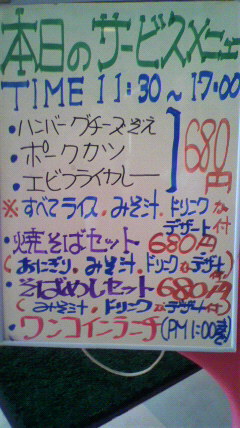 本日のサービスメニュー
TIME 11:30~17:00
・ハンバーグチーズぞえ
・ポークカツ
・エビフライカレー
680円
※すべてライス.みそ汁.ドリンク
デザート付
・焼そばセット 680円
(おにぎり.みそ汁.ドリンク デザート付)
・そばめしセット 680円
(みそ汁.ドリンク デザート付)
・ワンコインランチ(PM1:00